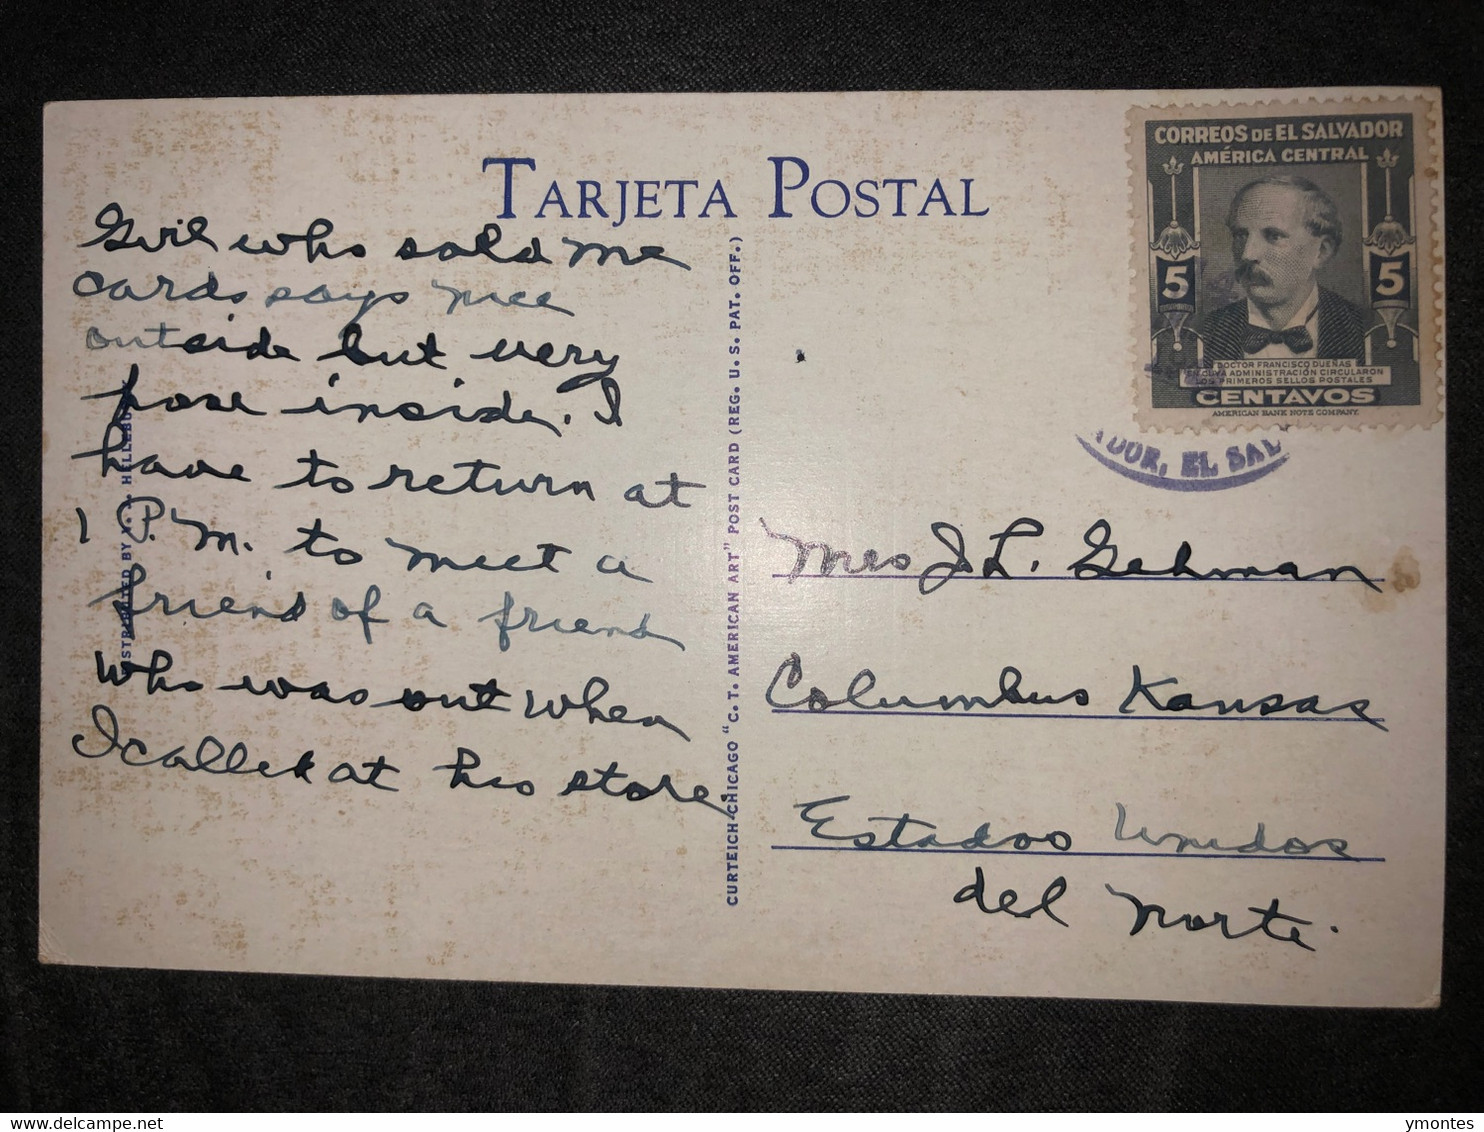 TARJETA POSTAL
Girl who sold me
cards says nice
outside but very
pose inside. I
have to return at
1 P.M. to meet a
friend of a friend
who was out when
I called at his store.
DISTRIBUTED BY
CURTEICH-CHICAGO "C. T. AMERICAN ART" POST CARD (REG. U. S. PAT. OFF.)
CORREOS DE EL SALVADOR
AMÉRICA CENTRAL
5 5
DOCTOR FRANCISCO DUEÑAS
EN CUYA ADMINISTRACIÓN CIRCULARON
LOS PRIMEROS SELLOS POSTALES
CENTAVOS
AMERICAN BANK NOTE COMPANY.
ADOR, EL SAL
Mrs J. L. Gehman
Columbus Kansas
Estados Unidos
del Norte.
ymontes